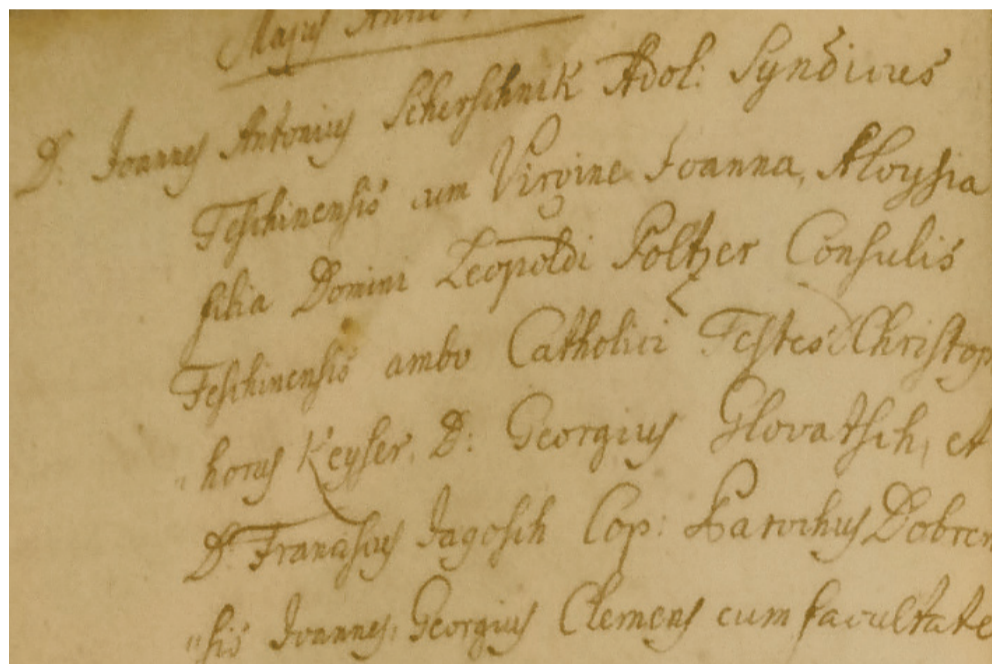 Majus Anni
D: Joannes Antonius Scherschnik Adol: Syndicus
Teschinensis cum Virgine Joanna, Aloysia
filia Domini Leopoldi Poltzer Consulis
Teschinensis ambo Catholici Testes Christop
horus Keyser, D: Georgius Glovatsch, et
D: Francisus Jagosch Cop: Parochus Dobren
sis Joannes Georgius Clemens cum facultate